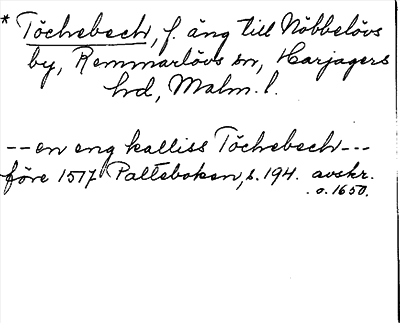 * Töchebech, f. äng till Nöbbelövs
by, Remmarlövs sn, Harjagers
hrd, Malm. l.
-- en eng kalliss Töchebech ---
före 1517 Palteboken, s. 194. avskr.
o. 1650.